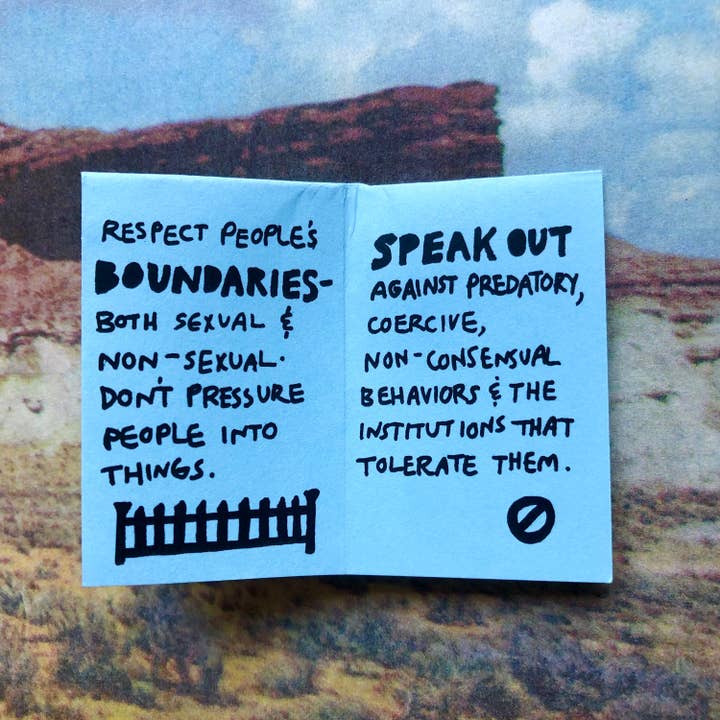 RESPECT PEOPLE'S
BOUNDARIES-
BOTH SEXUAL &
NON-SEXUAL.
DON'T PRESSURE
PEOPLE INTO
THINGS.
SPEAK OUT
AGAINST PREDATORY,
COERCIVE,
NON-CONSENSUAL
BEHAVIORS & THE
INSTITUTIONS THAT
TOLERATE THEM.